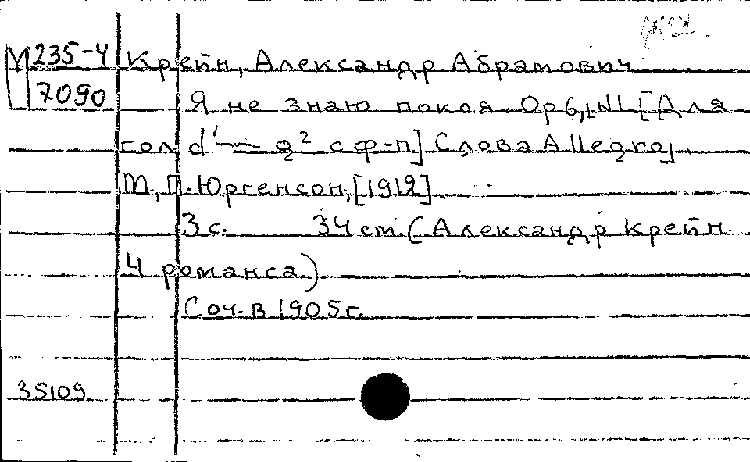 М 235-4 Крейн, Александр Абрамович
7090 Я не знаю покоя. Ор 6, N1. [Для
гол. d¹ — g² с ф-п.] Слова А.
М., П. Юргенсон, [1912]
3 с. 34 cm. (Александр Крейн
4 романса)
Соч. в 1905 г.
35109